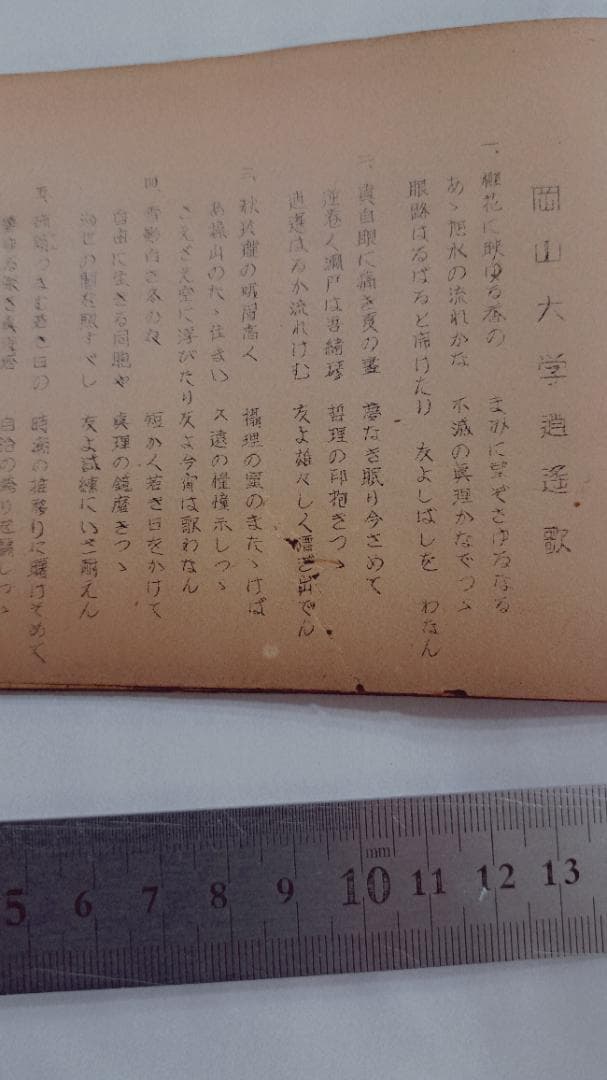 岡山大学逍遥歌
一、桜花に映ゆる春の まみに望ぞさゆるなる
あゝ旭水の流れかな 不滅の眞理かなでつゝ
眼路はるばると席けたり 友よしばしを わなん
二、真白眼に痛き夏の晝 夢なき眠り今さめて
逆巻く瀬戸は吾緒琴 哲理の印抱きつゝ
はるか流れけむ 友よ雄々しく漕ぎ出でん
三、秋玲瓏の 高く 攝理の嵐のまたゝけば
あゝ操山のたゝ住まい 久遠の憧憬示しつゝ
さえざえ空に浮びたり 友よ今宵は歌わなん
四、香影白き冬の夜 短かく若き日をかけて
自由に生きる同胞や 真理の鏡磨きつゝ
の闇を照すべし 友よ試練にいざ耐えん
五、 つきむ若き日の 時劫の推移りに曙けそめて
自治の
5 6 7 8 9 10 11 12 13
mm